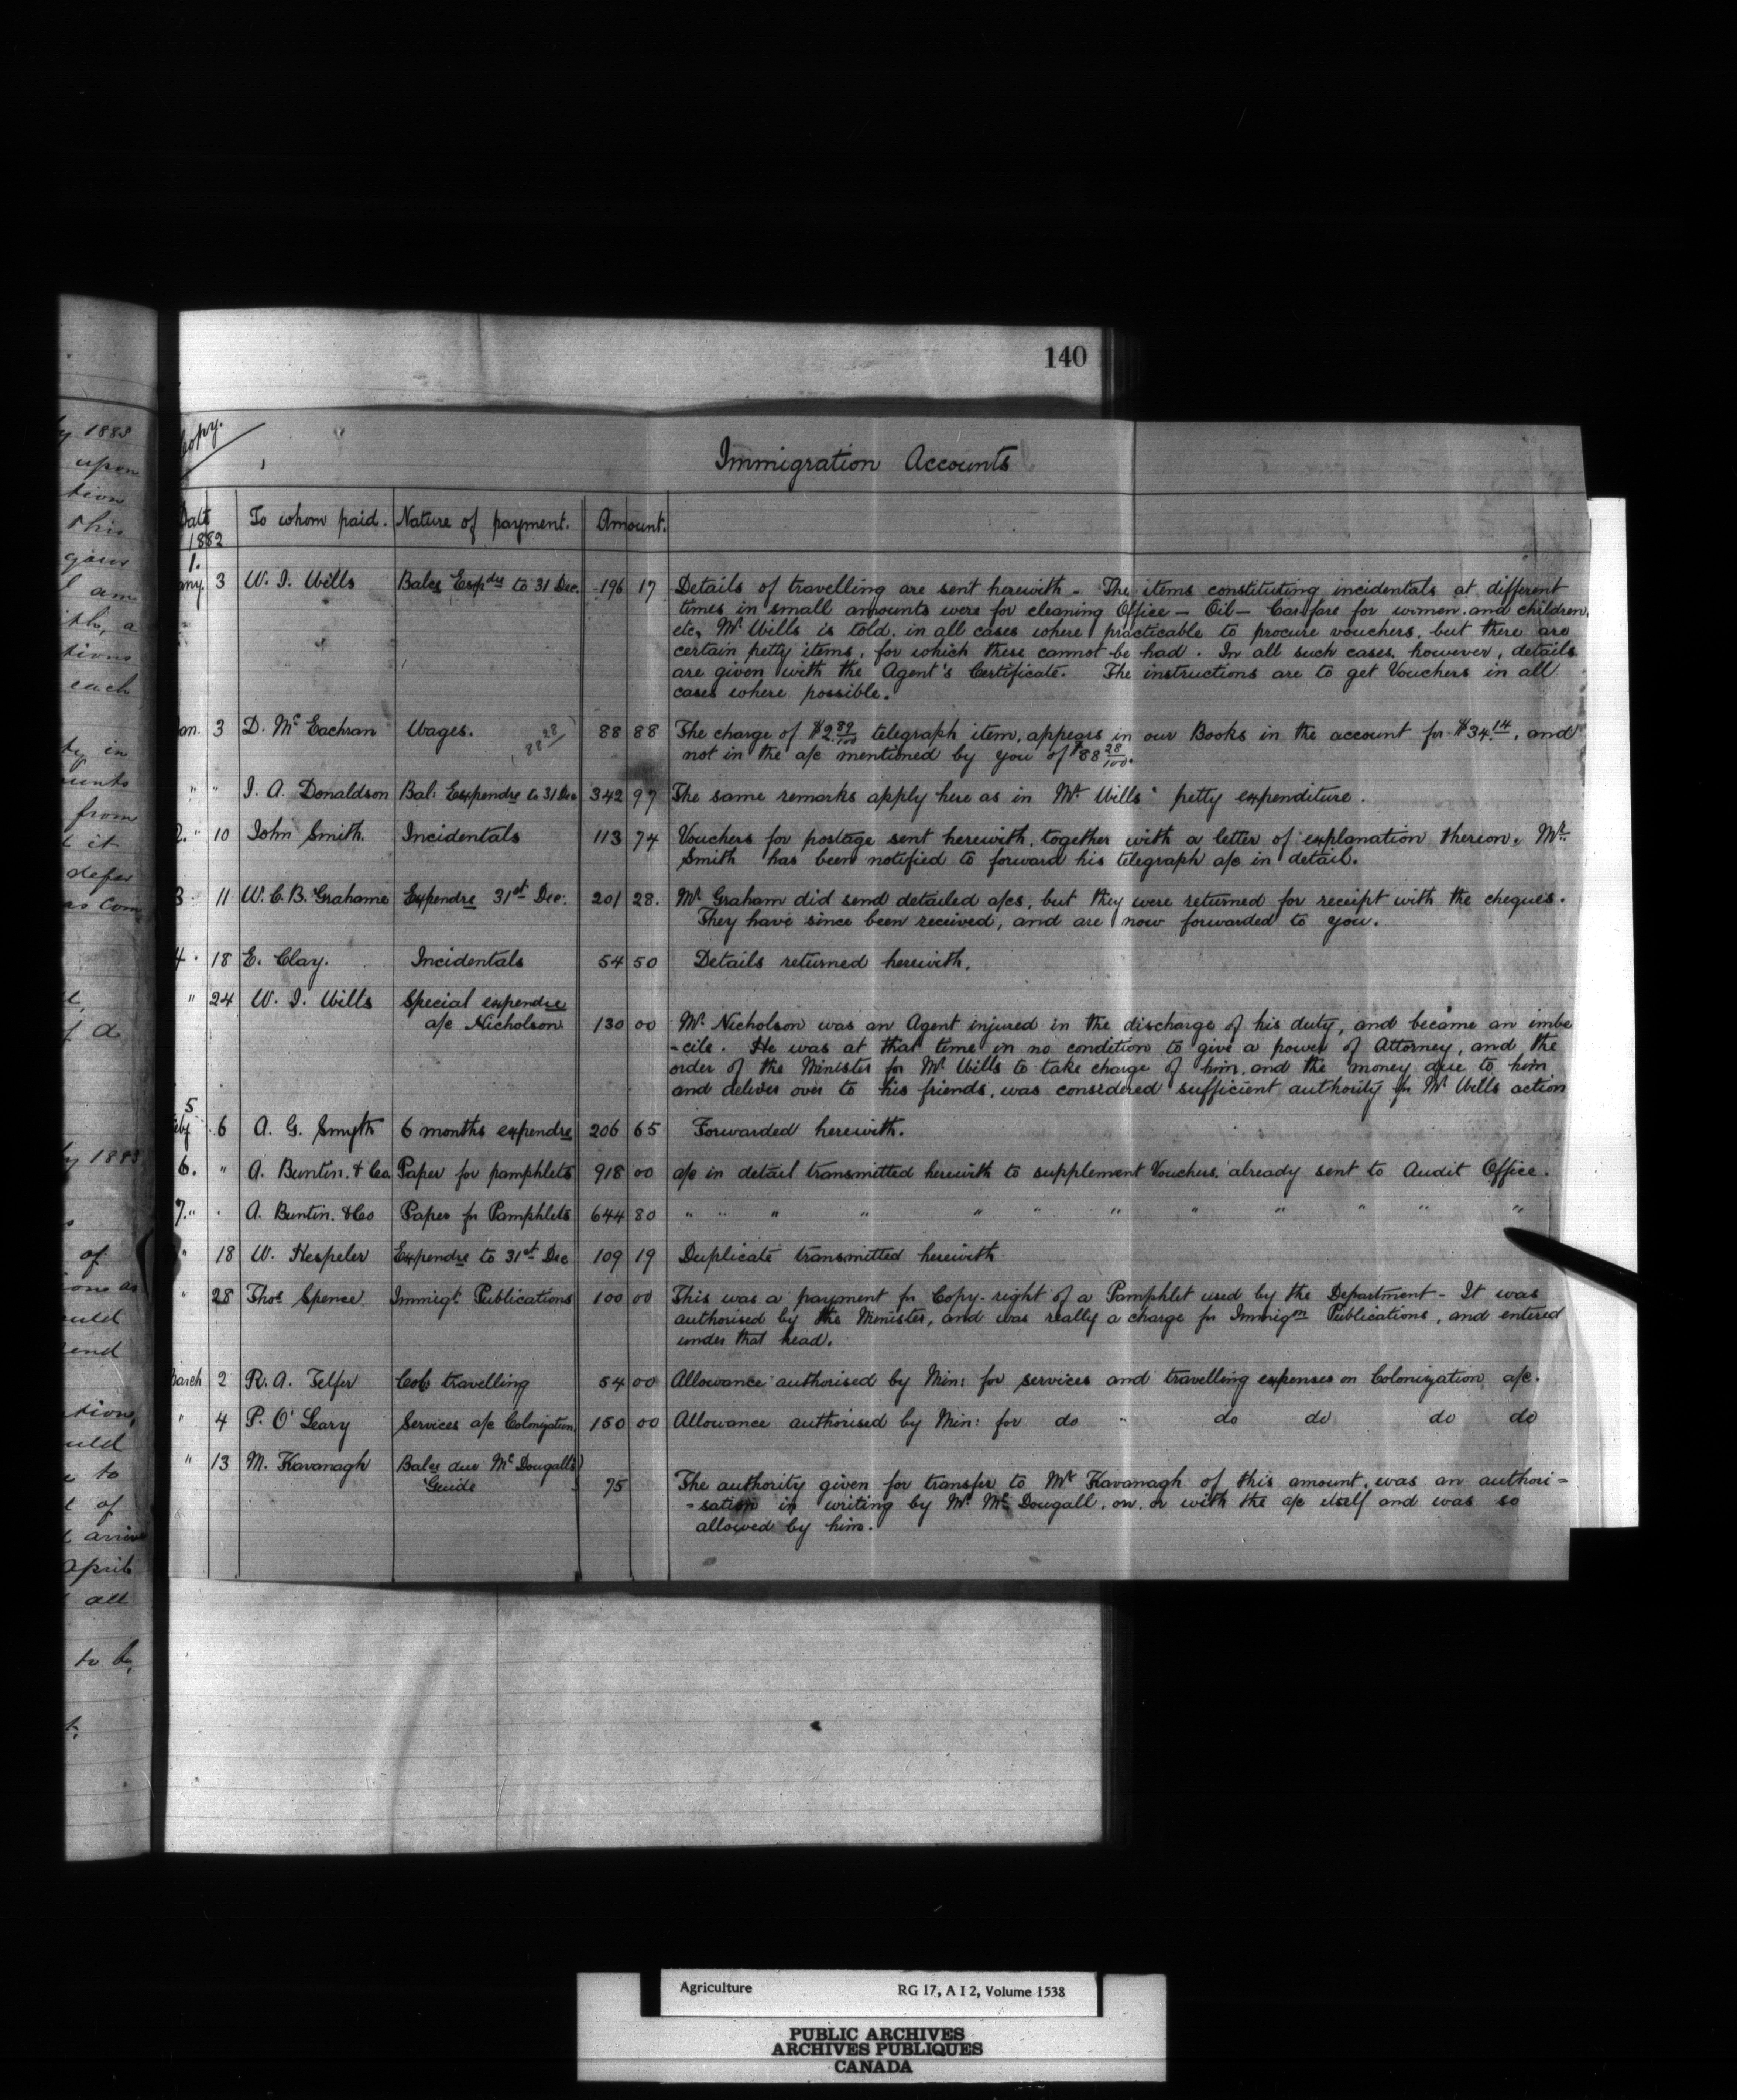 140
Copy.
Immigration Accounts
Date To whom paid. Nature of payment. Amount.
1882
1.
any. 3 W. I. Wills Bales Expdes to 31 Dec. 196 17 Details of travelling are sent herewith - The items constituting incidentals at different
times in small amounts were for cleaning Office - Oil - Car fare for women and children,
etc, Mr Wills is told, in all cases where practicable to procure vouchers, but there are
certain petty items, for which these cannot be had. In all such cases, however, details
are given with the Agent's Certificate. The instructions are to get Vouchers in all
cases where possible.
an. 3 D. Mc Eachran Wages. 88 28 88 88 The charge of $2.89/100 telegraph item, appears in our Books in the account for $34.14, and
not in the a/c mentioned by you of $88 28/100.
" " J. A. Donaldson Bal: Expendre to 31 Dec 342 97 The same remarks apply here as in Mr Wills' petty expenditure.
2. " 10 John Smith. Incidentals 113 74 Vouchers for postage sent herewith, together with a letter of explanation thereon. Mr.
Smith has been notified to forward his telegraph a/c in detail.
3 11 W. C. B. Grahame Expendre 31st Dec. 201 28. Mr Graham did send detailed a/cs, but they were returned for receipt with the cheques.
They have since been received, and are now forwarded to you.
4. 18 E. Clay. Incidentals 54 50 Details returned herewith.
" 24 W. I. Wills Special expendre
a/c Nicholson 130 00 Mr. Nicholson was an Agent injured in the discharge of his duty, and became an imbe
-cile. He was at that time in no condition to give a power of Attorney, and the
order of the Minister for Mr Wills to take charge of him, and the money due to him
and deliver over to his friends, was considered sufficient authority for Mr Wills action
5
eby 6 A. G. Smyth 6 months expendre 206 65 Forwarded herewith.
6. " A. Buntin. & Co. Paper for pamphlets 918 00 a/c in detail transmitted herewith to supplement Vouchers, already sent to Audit Office.
7. " A. Buntin. & Co Paper for Pamphlets 644 80 " " " " " " " " " " " "
" 18 W. Hespeler Expendre to 31st Dec 109 19 Duplicate transmitted herewith
" 28 Thos Spence Immigt. Publications 100 00 This was a payment for Copy-right of a Pamphlet used by the Department - It was
authorised by the Minister, and was really a charge for Immign Publications, and entered
under that head.
arch 2 R. A. Telfer Col travelling 54 00 Allowance authorised by Min: for services and travelling expenses on Colonization a/c.
" 4 P. O'Leary Services a/c Colonization 150 00 Allowance authorised by Min: for do " do do do do
" 13 M. Kavanagh Bales due Mc Dougall's
Guide 75 The authority given for transfer to Mr Kavanagh of this amount, was an authori=
=sation in writing by Mr. Mc Dougall, on, or with the a/c itself and was so
allowed by him.
y 1883
upon
tion
this
gave
I am
ith, a
tions
each
ty in
unts
from
t it
defer
as com
of a
y 1883
of
one as
uld
end
tions,
uld
e to
t of
April
all
to be,
Agriculture RG 17, A I 2, Volume 1538
PUBLIC ARCHIVES
ARCHIVES PUBLIQUES
CANADA